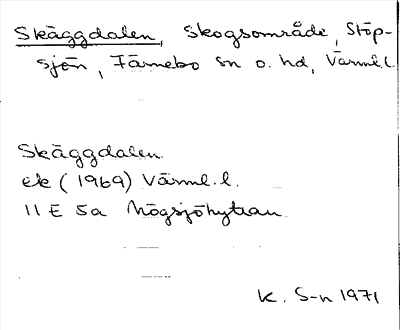 Skäggdalen, Skogsområde, Stöp-
sjön, Färnebo sn o. hd, Värml.l.
Skäggdalen
ek (1969) Värml. l.
11 E 5a Högsjöhyttan
K. S-n 1971